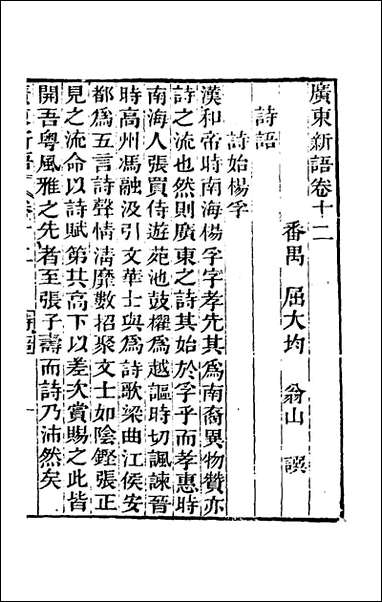 廣東新語卷十二
番禺　屈大均　翁山　譔
詩語
詩始楊孚
漢和帝時南海楊孚字孝先其爲南裔異物贊亦
詩之流也然則廣東之詩其始於孚乎而孝惠時
南海人張買侍遊苑池鼓櫂爲越謳時切諷諫晉
時高州馮融汲引文華士與爲詩歌梁曲江侯安
都爲五言詩聲情清靡數招聚文士如陰鏗張正
見之流命以詩賦第其高下以差次賞賜之此皆
開吾粵風雅之先者至張子壽而詩乃沛然矣